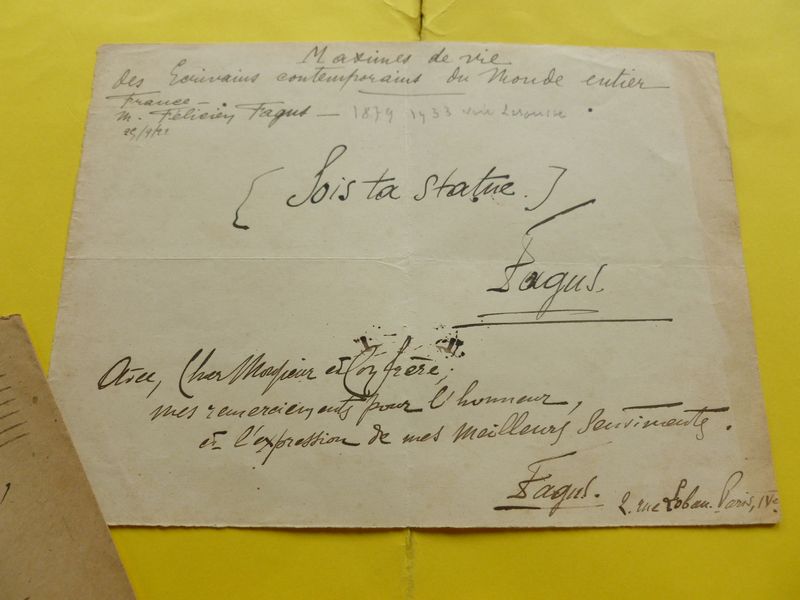 Maximes de vie
des Ecrivains contemporains du Monde entier
France -
M. Félicien Fagus - 1879 1933 voir Larousse
[ Sois ta statue. ]
Fagus.
Avec, Cher Monsieur et Confrère,
mes remerciements pour l'honneur,
et l'expression de mes meilleurs sentiments.
Fagus.
2. rue Lobau. Paris, IVe